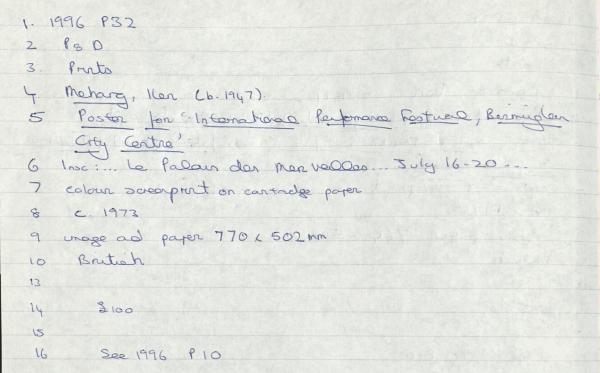 1. 1996 P32
2 P&D
3. Prints
4 Meharg, Ken (b. 1947)
5 Poster for 'International Performance Festival, Birmingham
City Centre'
6 Insc:... Le Palais des Merveilles... July 16-20...
7 colour screenprint on cartridge paper
8 c. 1973
9 image ad paper 770 x 502mm
10 British
13
14 £100
15
16 See 1996 P10